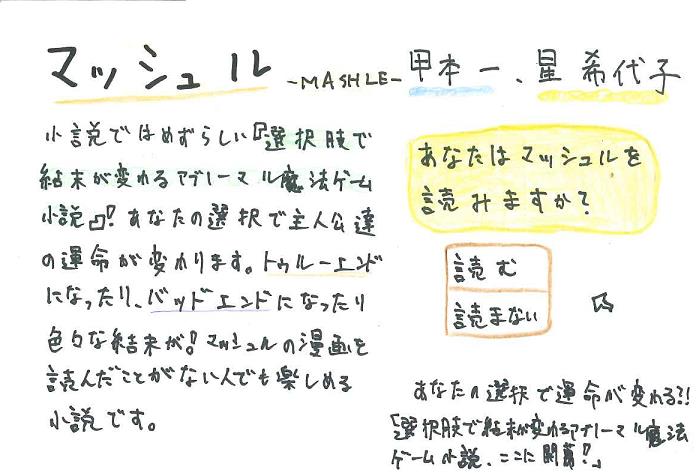 マッシュル -MASHLE- 甲本一、星希代子
小説ではめずらしい『選択肢で
結末が変わるアブノーマル魔法ゲーム
小説』！あなたの選択で主人公達
の運命が変わります。トゥルーエンド
になったり、バッドエンドになったり
色々な結末が！マッシュルの漫画を
読んだことがない人でも楽しめる
小説です。
あなたはマッシュルを
読みますか？
読む
読まない
あなたの選択で運命が変わる？！
「選択肢で結末が変わるアブノーマル魔法
ゲーム小説、ここに開幕！」